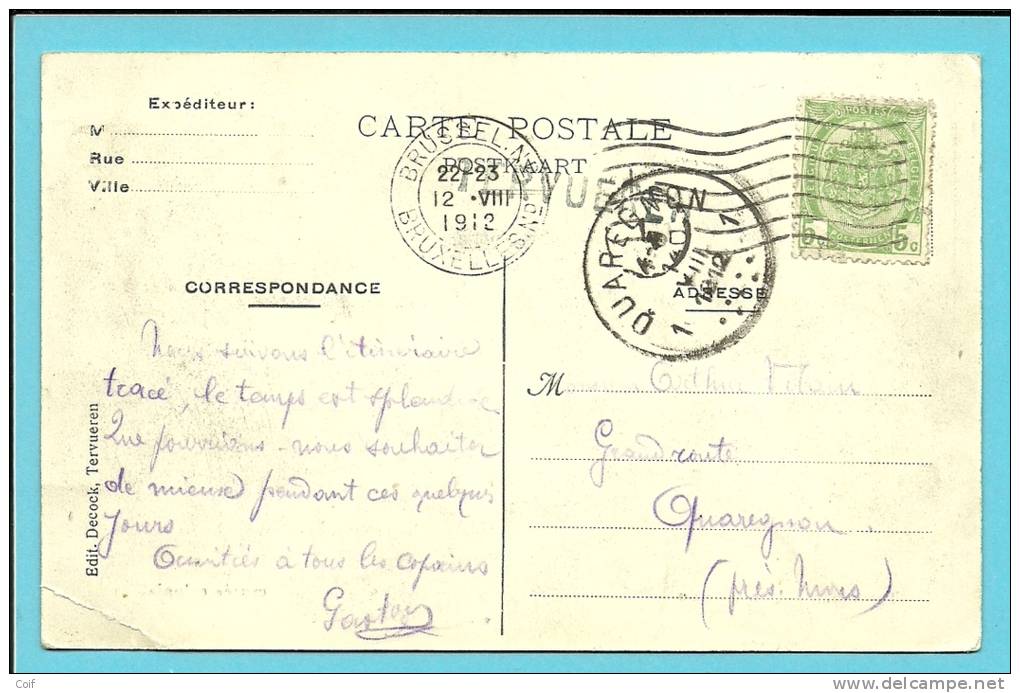 Expéditeur:
M
Rue
Ville
CARTE POSTALE
POSTKAART
BRUSSEL.N
22-23
12 .VIII
1912
BRUXELLES.Nº
TERVUEREN
QUAREGNON
VIII
1912
1 1
POSTES
5 C
CORRESPONDANCE
ADRESSE
Nous suivons l'itinéraire
tracé, le temps est splendide
Que pourrions-nous souhaiter
de mieux pendant ces quelques
jours
Amitiés à tous les copains
Gaston
M
Grand'route
Quaregnon.
(près Mons)
Edit. Decock, Tervueren
Coif
www.delcampe.net